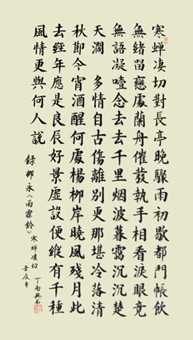 寒蟬凄切對長亭晚驟雨初歇都門帳飲
無緒留戀處蘭舟催發執手相看淚眼竟
無語凝噎念去去千里烟波暮靄沉沉楚
天濶多情自古傷離別更那堪冷落清
秋節今宵酒醒何處楊柳岸曉風殘月此
去經年應是良辰好景虛設便縱有千種
風情更與何人說
錄柳永《雨霖鈴》寒蟬凄切
壬辰年